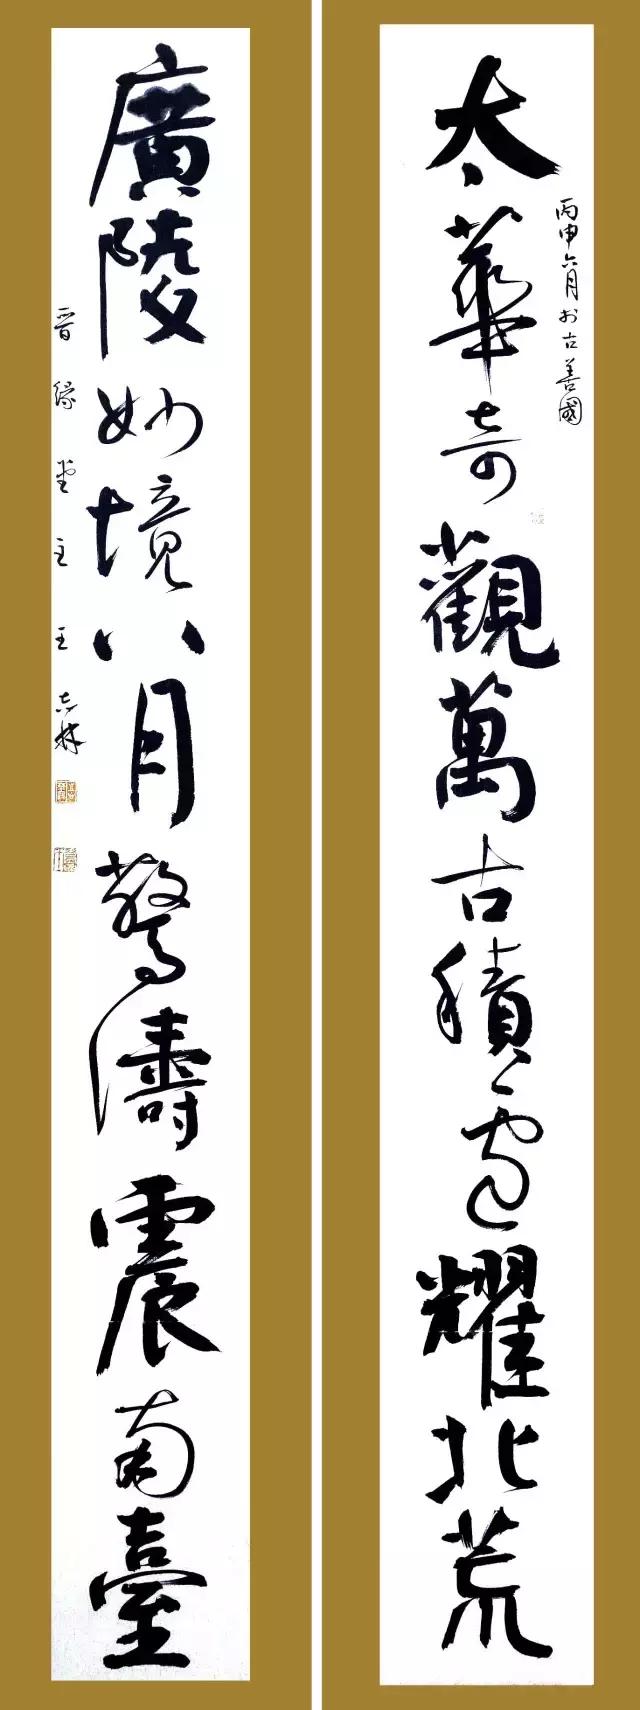 丙申六月於古善國
太華奇觀萬古積雪耀北荒
廣陵妙境八月驚濤震南臺
晋緣堂主王志林